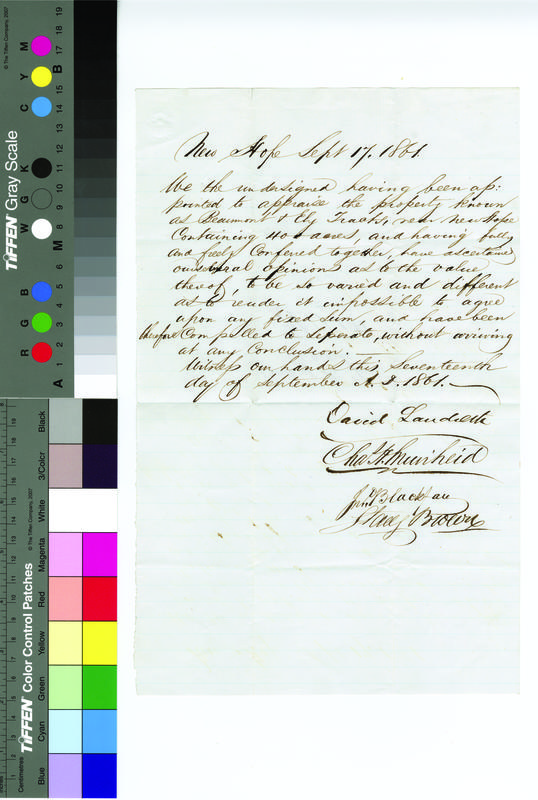 New Hope Sept 17. 1861.
We the undersigned having been ap:
pointed to appraise the property known
as Beaumont & Ely Tracts, near New Hope
Containing 400 acres, and having fully
and freely Confered together, have ascertained
our several opinions as to the value
thereof, to be so varied and different
as to render it impossible to agree
upon any fixed sum, and have been
therefore Compelled to Seperate, without arriving
at any Conclusion.
Witness our hands this Seventeenth
day of September A. D. 1861.
David Landreth
Chas. H. Muirheid
Jno Blackfan
Brown
TIFFEN Gray Scale
© The Tiffen Company, 2007
R G B W G K C Y M
A 1 2 3 4 5 6 M 8 9 10 11 12 13 14 15 B 17 18 19
TIFFEN Color Control Patches
© The Tiffen Company, 2007
Centimetres
Blue Cyan Green Yellow Red Magenta White 3/Color Black